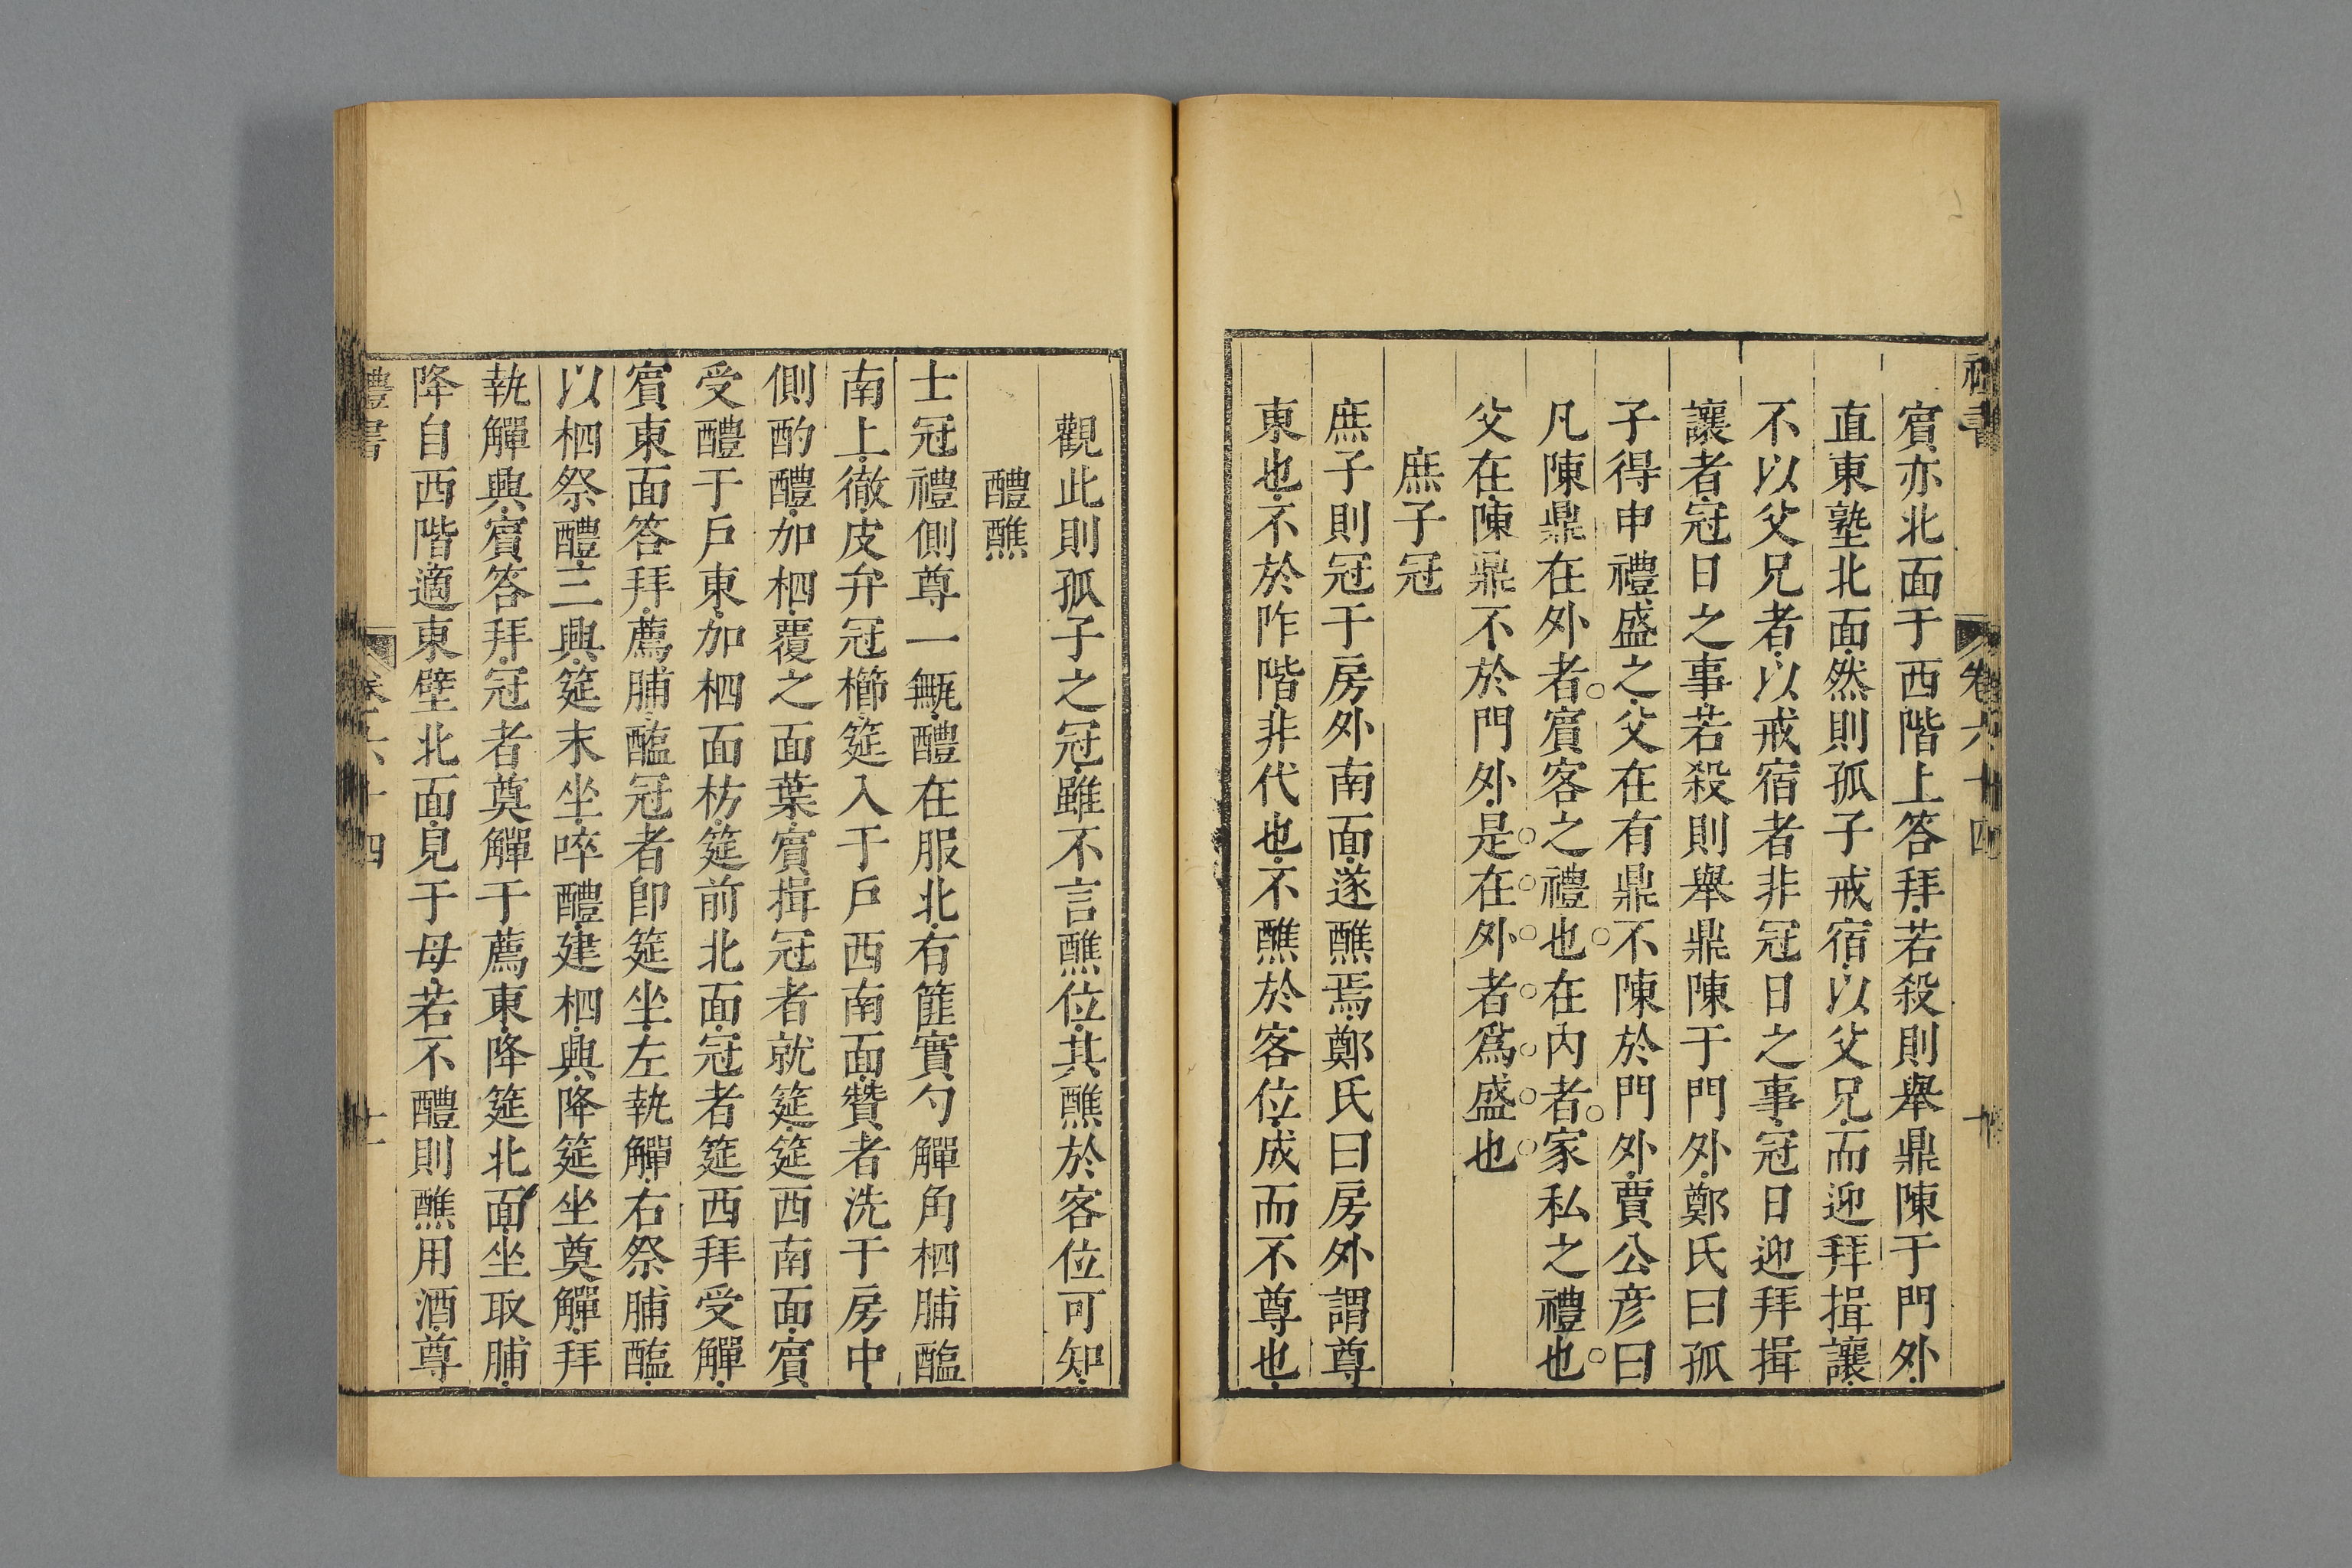 禮書 卷六十四 十
賔亦北面于西階上答拜若殺則舉鼎陳于門外
直東塾北面然則孤子戒宿以父兄而迎拜揖讓
不以父兄者以戒宿者非冠日之事冠日迎拜揖
讓者冠日之事若殺則舉鼎陳于門外鄭氏曰孤
子得申禮盛之父在有鼎不陳於門外賈公彦曰
凡陳鼎在外者賔客之禮也在内者家私之禮也
父在陳鼎不於門外是在外者爲盛也
庶子冠
庶子則冠于房外南面遂醮焉鄭氏曰房外謂尊
東也不於阼階非代也不醮於客位成而不尊也
觀此則孤子之冠雖不言醮位其醮於客位可知
醴醮
士冠禮側尊一甒醴在服北有篚實勺觶角柶脯醢
南上徹皮弁冠櫛筵入于戶西南面贊者洗于房中
側酌醴加柶覆之面葉賔揖冠者就筵筵西南面賔
受醴于戶東加柶面枋筵前北面冠者筵西拜受觶
賔東面答拜薦脯醢冠者卽筵坐左執觶右祭脯醢
以柶祭醴三興筵末坐啐醴建柶興降筵坐奠觶拜
執觶興賔答拜冠者奠觶于薦東降筵北面坐取脯
降自西階適東壁北面見于母若不醴則醮用酒尊
禮書 卷六十四